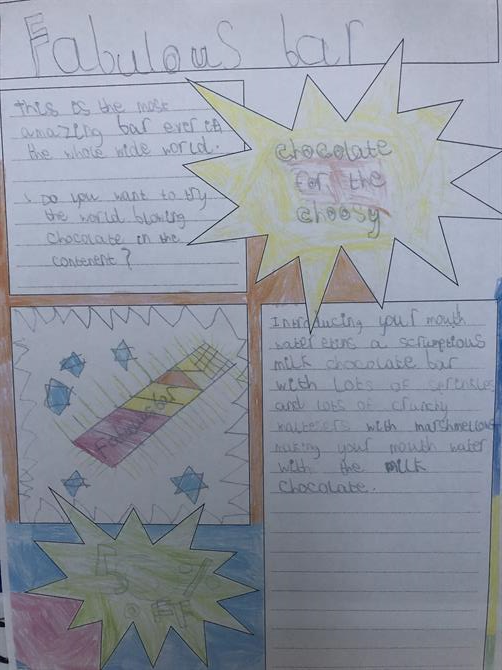 Fabulous bar
This is the most
amazing bar ever in
the whole wide world.
Do you want to try
the world blowing
chocolate in the
contenent?
chocolate
for the
choosy
Fabulous bar
Introducing your mouth
a scrumptious
milk chocolate bar
with lots of sprinkles
and lots of crunchy
maltesers with marshmellows
making your mouth water
with the milk
chocolate.
50%
off